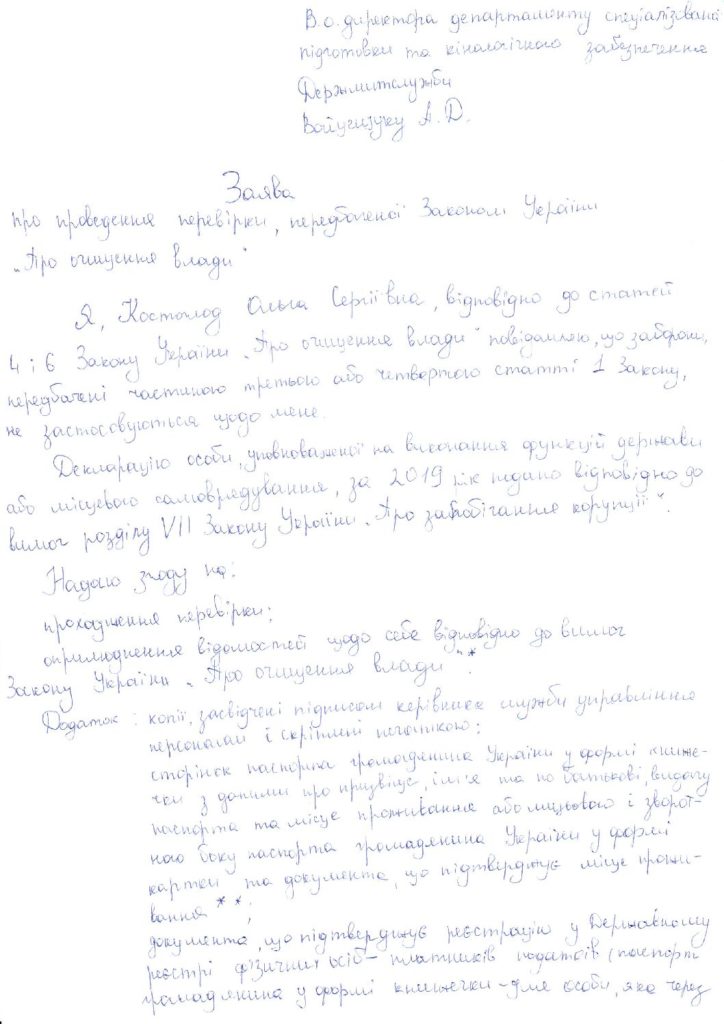 В.о. директора департаменту спеціалізованої
підготовки та кінологічного забезпечення
Держмитслужби
А. Д.
Заява
про проведення перевірки, передбаченої Законом України
„Про очищення влади"
Я, Костолод Ольга Сергіївна, відповідно до статей
4 і 6 Закону України „Про очищення влади" повідомляю, що заборони,
передбачені частиною третьою або четвертою статті 1 Закону,
не застосовуються щодо мене.
Декларацію особи, уповноваженої на виконання функцій держави
або місцевого самоврядування, за 2019 рік подано відповідно до
вимог розділу VII Закону України „Про запобігання корупції".
Надаю згоду на:
проходження перевірки;
оприлюднення відомостей щодо себе відповідно до вимог
Закону України „Про очищення влади"*.
Додаток: копії, засвідчені підписом керівника служби управління
персоналом і скріплені печаткою:
сторінок паспорта громадянина України у формі книже-
чки з даними про прізвище, ім'я та по батькові, видачу
паспорта та місце проживання або лицьового і зворот-
ного боку паспорта громадянина України у формі
картки та документа, що підтверджує місце прожи-
вання**;
документа, що підтверджує реєстрацію у Державному
реєстрі фізичних осіб – платників податків (паспорт
громадянина у формі книжечки – для особи, яка через